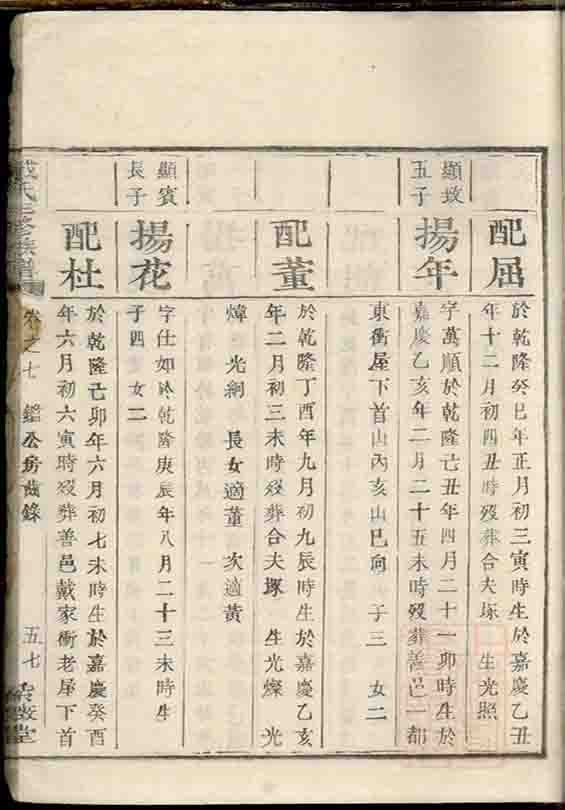 配屈
於乾隆癸巳年正月初三寅時生於嘉慶乙丑
年十二月初四丑時歿葬合夫塚 生光照
顯玫
五子
揚年
字萬順於乾隆己丑年四月二十一卯時生於
嘉慶乙亥年二月二十五未時歿葬善邑一都
東衝屋下首山內亥山巳向 子三 女二
配董
於乾隆丁酉年九月初九辰時生於嘉慶乙亥
年二月初三未時歿葬合夫塚 生光燦 光
煒 光綱 長女適董 次適黃
顯賓
長子
揚花
字仕如於乾隆庚辰年八月二十三未時生
子四 女二
配杜
於乾隆己卯年六月初七未時生於嘉慶癸酉
年六月初六寅時歿葬善邑戴家衝老屋下首
戴氏三修族譜
卷之七 鑑公房齒錄
五七